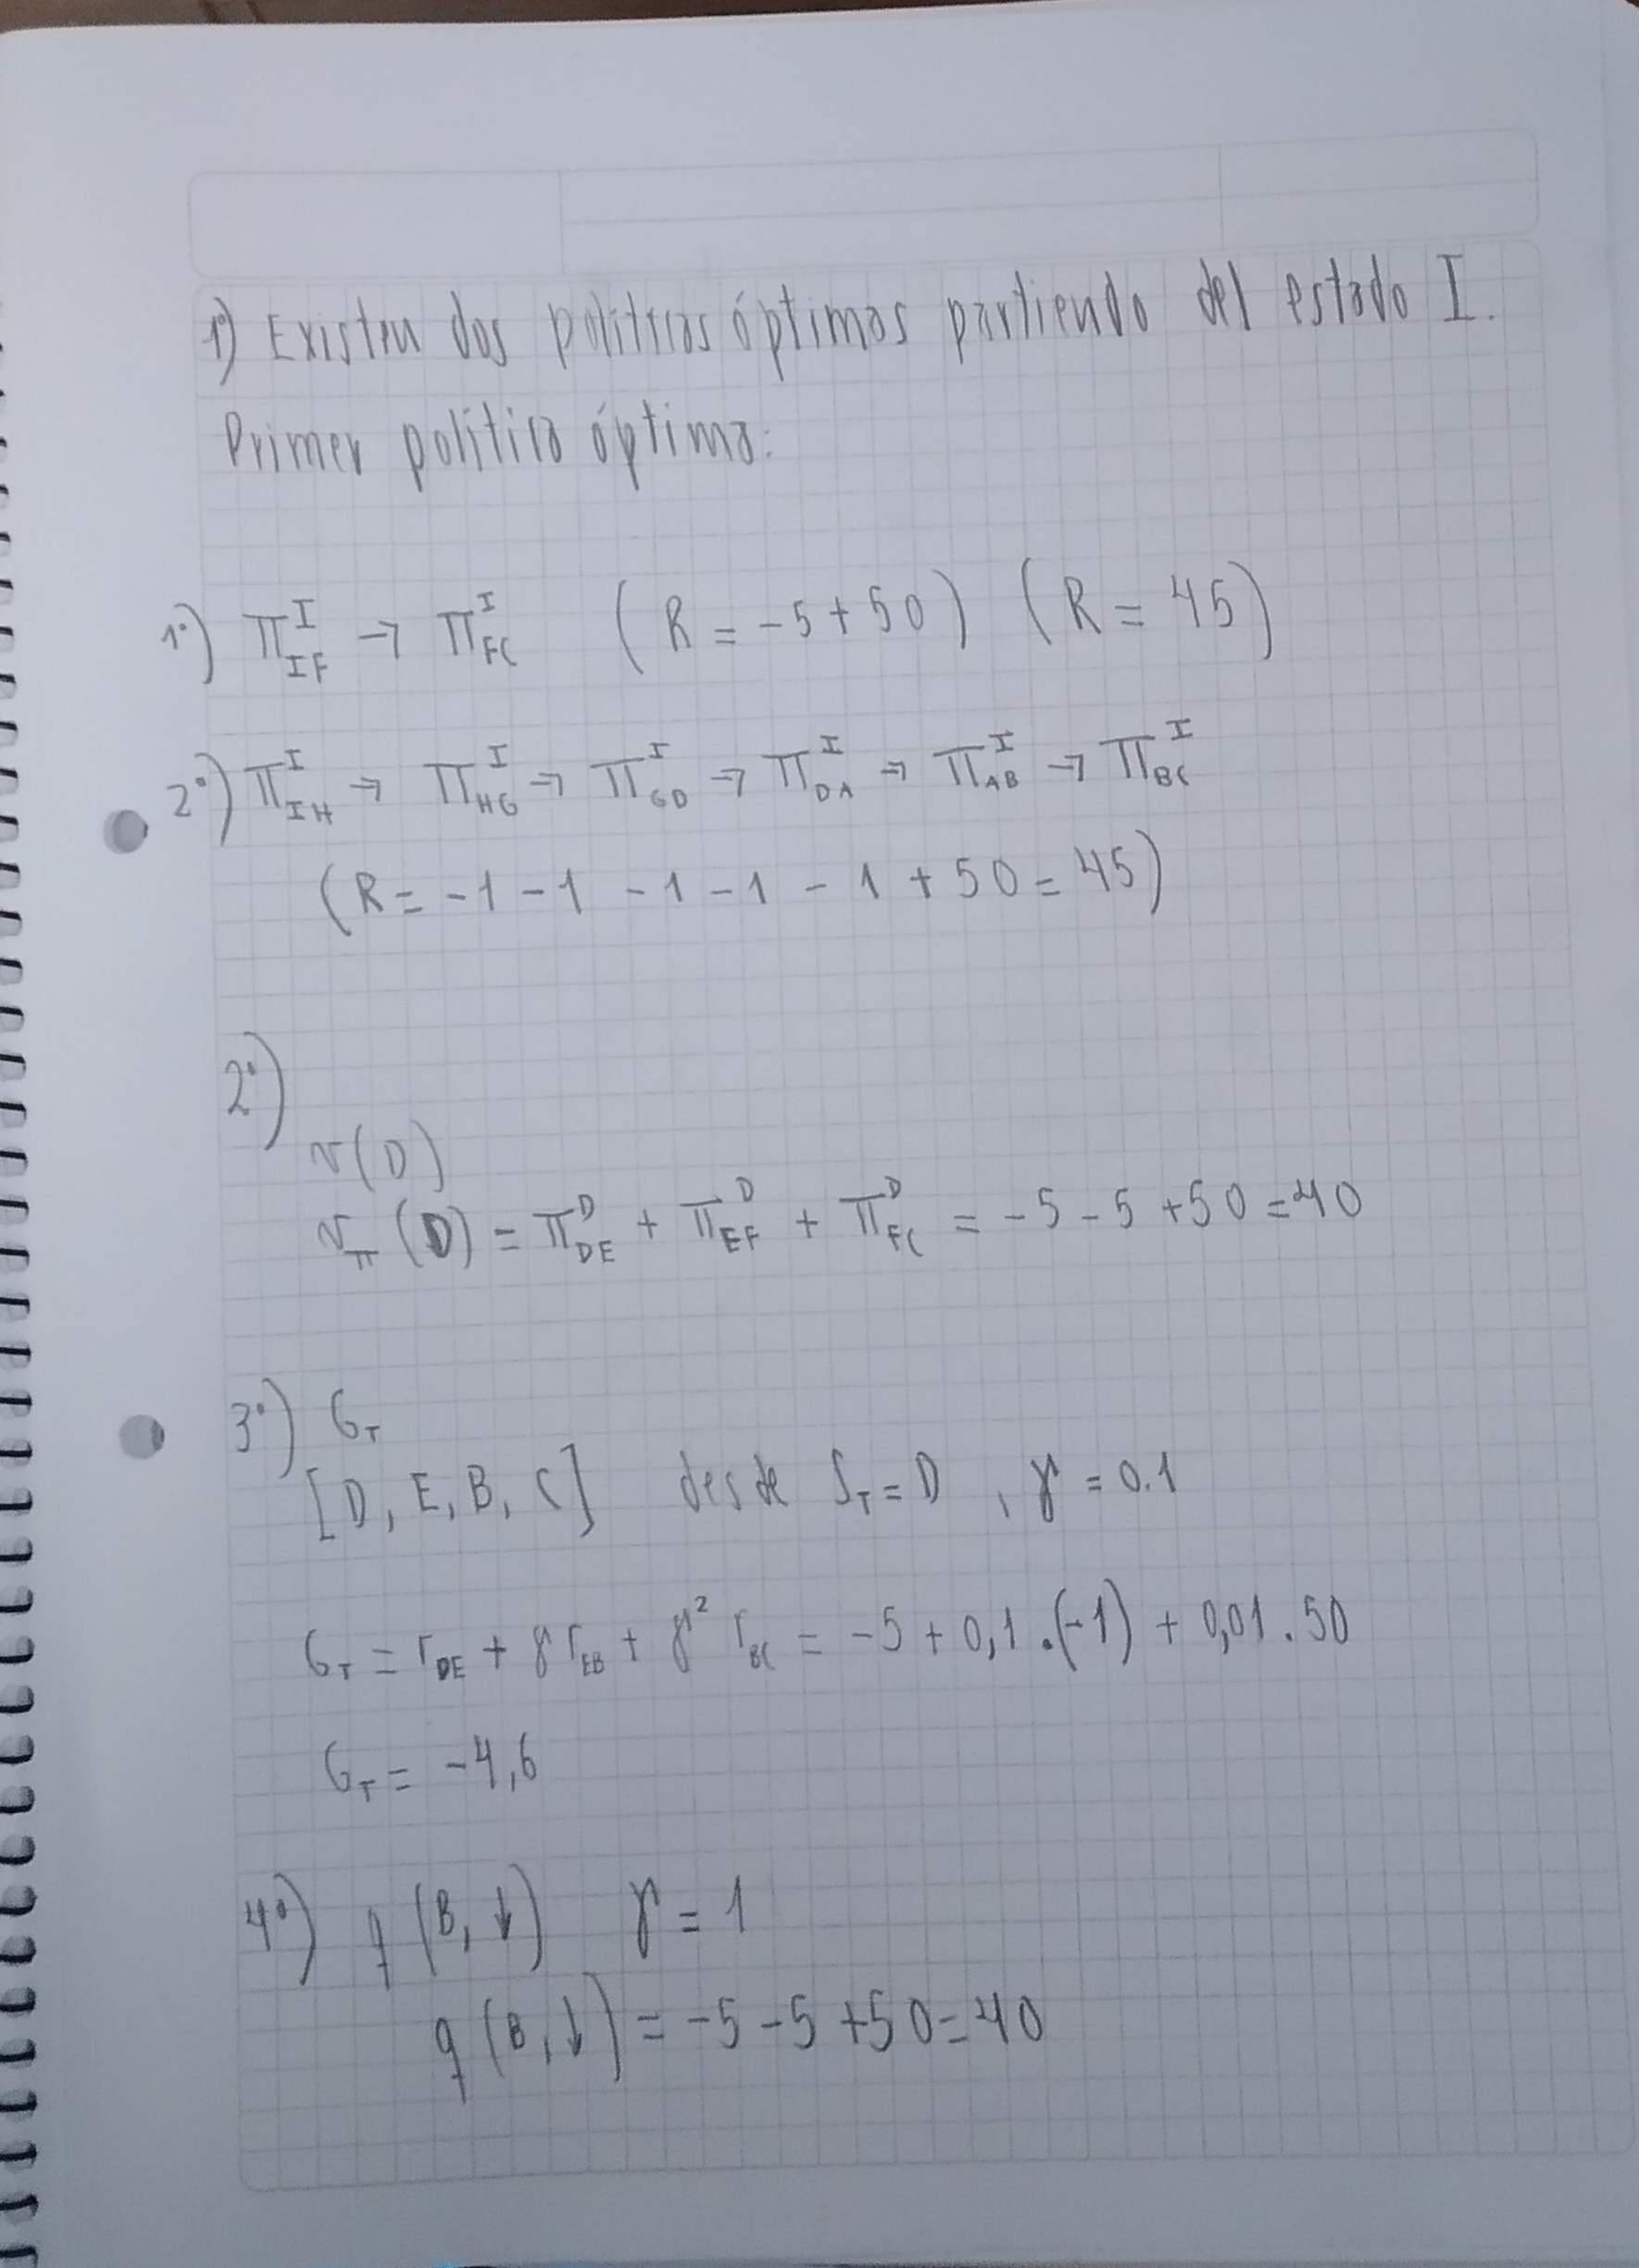 1º) Existen dos políticas óptimas partiendo del estado I.
Primer política óptima:
1º) Π^I_{IF} → Π^I_{FC} (R = -5 + 50) (R = 45)
2º) Π^I_{IH} → Π^I_{HG} → Π^I_{GD} → Π^I_{DA} → Π^I_{AB} → Π^I_{BC}
(R = -1 - 1 - 1 - 1 - 1 + 50 = 45)
2º)
v(D)
v_π (D) = Π^D_{DE} + Π^D_{EF} + Π^D_{FC} = -5 - 5 + 50 = 40
3º) G_T
[D, E, B, C] desde S_T = D , γ = 0.1
G_T = r_{DE} + γ r_{EB} + γ² r_{BC} = -5 + 0,1 . (-1) + 0,01 . 50
G_T = -4,6
4º) q (B, ↓) γ = 1
q (B, ↓) = -5 - 5 + 50 = 40